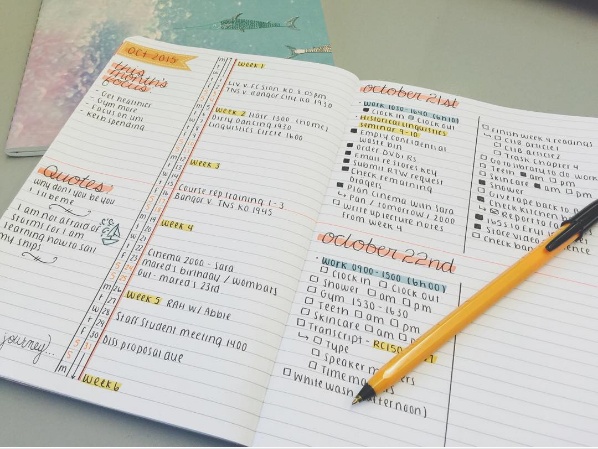 OCT 2015
this month's focus
- Get healthier
- Gym more
- Focus on uni
- Keep spending
Quotes
Why don't you be you
I'll be me
I am not afraid of
storms for I am
learning how to sail
my ships
journey...
week 1
Liv v. FC Sion KO 8.05pm
TNS v Bangor City KO 1930
week 2
(home)
Dirty dancing 1930
Linguistics Circle 1600
week 3
Course rep training 1-3
Bangor v. TNS KO 1945
week 4
Cinema 2000 - Sara
Mared's birthday / wombats
Out - mared's 23rd
week 5 RAH w/ Abbie
Staff student meeting 1400
Diss proposal due
week 6
october 21st
- work 1030-1640 (6h10)
Clock in Clock out
Historical linguistics
seminar 9-10
Empty confidential
waste bin
Order DVD RS
Email re stores key
Submit RTW request
Check remaining
Plan cinema with Sara
↳ Pan / tomorrow / 2000
Write up lecture notes
from week 4
Finish week 4 readings
Club article 1
Club article 2
Trask Chapter 4
Go to library to do work
Teeth am pm
Skincare am pm
Shower
Give tape back to
Check kitchen
Store video
Check
october 22nd
- work 0900-1500 (6h00)
Clock in Clock out
Shower am pm
Gym 1530-1630
Teeth am pm
Skincare am pm
Transcript -
↳ Type
Speaker
White wash afternoon)